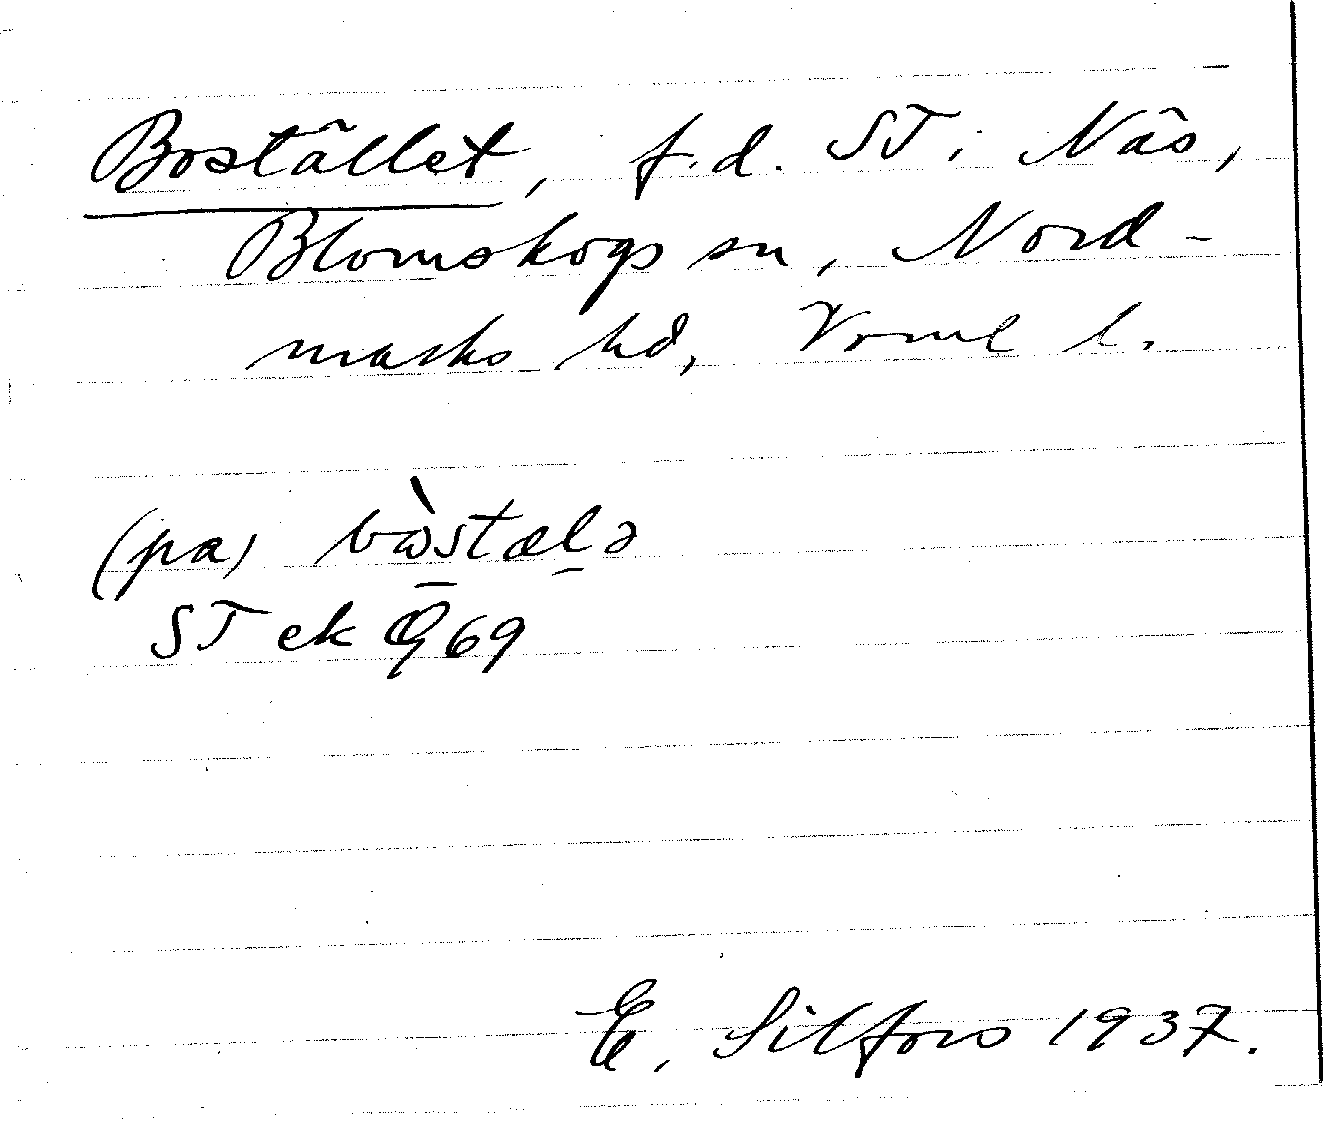 Bostället, f.d. ST i Näs,
Blomskogs sn, Nord-
marks hd, Vrml l.
(pa) bòstælə
ST ek G 69
E. Silfors 1937.